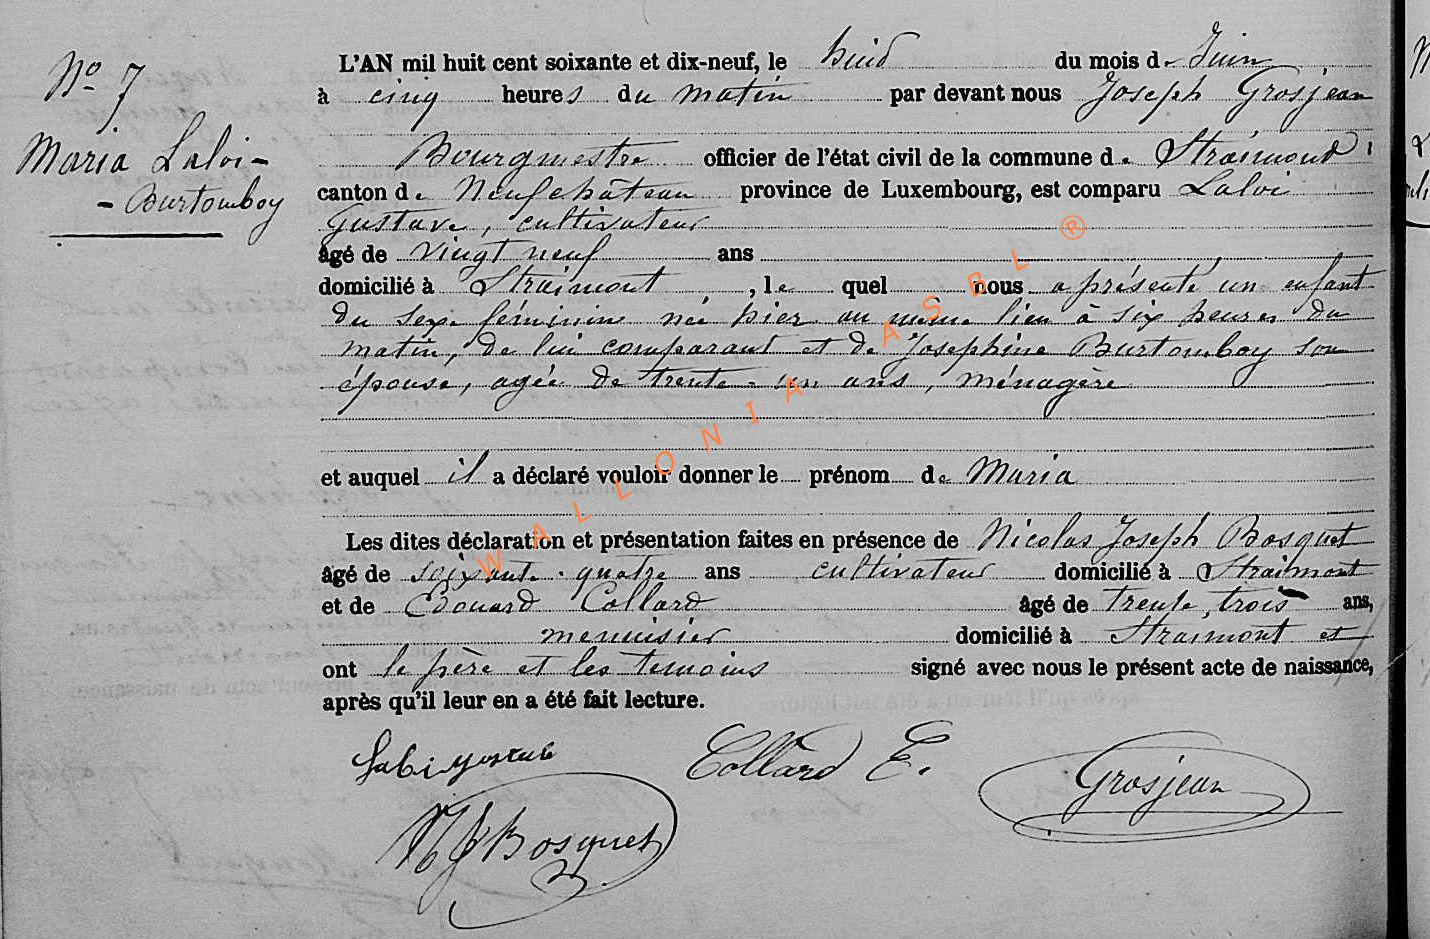 N° 7
Maria Laloi-
- Burtomboy
L'AN mil huit cent soixante et dix-neuf, le huit du mois de Juin
à cinq heures du matin par devant nous Joseph Grosjean
Bourgmestre officier de l'état civil de la commune de Straimont,
canton de Neufchâteau province de Luxembourg, est comparu Laloi
Gustave, cultivateur
âgé de vingt neuf ans
domicilié à Straimont, le quel nous a présenté un enfant
du sexe féminin né hier au même lieu à six heures du
matin, de lui comparant et de Joséphine Burtomboy son
épouse, agée de trente-un ans, ménagère
et auquel il a déclaré vouloir donner le prénom de Maria
Les dites déclaration et présentation faites en présence de Nicolas Joseph Bosquet
âgé de soixante-quatre ans cultivateur domicilié à Straimont
et de Edouard Collard âgé de trente trois ans,
menuisier domicilié à Straimont et
ont le père et les temoins signé avec nous le présent acte de naissance,
après qu'il leur en a été fait lecture.
Collard E.
Grosjean
NJBosquet
WALLONIA ASBL ®